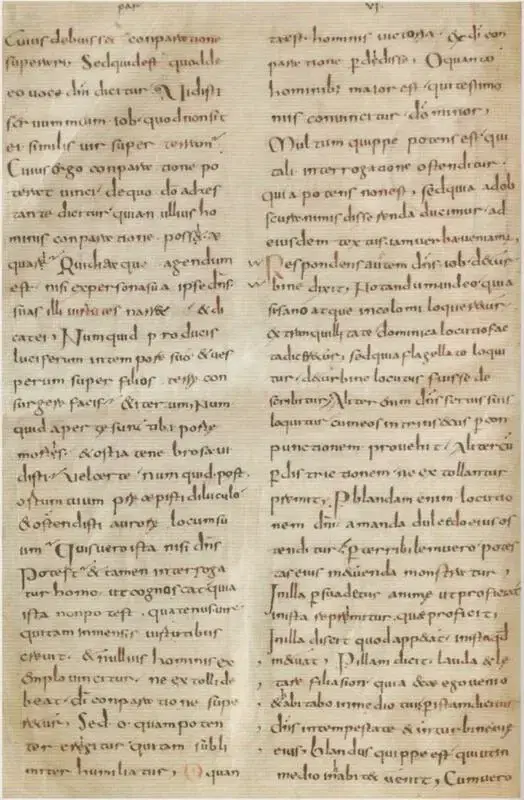 par vi
Cuius debuisset conparatione
superari. Sed quid est quod de
eo voce dni dicitur. Vidisti
servum meum iob. quod non sit
ei similis vir super terram.
Cuius ergo conparatione po
teret vinci. de quo do adtes
tante dicitur quia nullius ho
minis conparatione possit ae
quari. Quid itaque agendum
est nisi ex persona sua ipse dns
suas illi virtutes narret & di
cat ei, Numquid producis
luciferum in tempore suo & ves
perum super filios terre con
surgere facis. & iterum Num
quid aperte sunt tibi porte
mortis. & ostia tenebrosa vi
disti. Vel certe numquid post
ortum tuum precepisti diluculo
& ostendisti aurore locum su
um. Quis vero ista nisi dns
Potest. & tamen interroga
tur homo ut cognoscat quia
ista non potest. quatenus vir
qui tam inmensis virtutibus
crevit. & nullius hominis ex
emplo vincitur. ne extolli de
beat. di conparatione supe
retur. Sed o quam poten
ter erigitur qui tam subli
miter humiliatur, O quan
ta est hominis victoria. ex di con
paratione perdidisse. O quanto
hominib; maior est. qui testimo
niis convincitur. do minor,
Multum quippe potens est. qui
tali interrogatione ostenditur.
quia potens non est, sed quia ad ob
scura nimis disserenda ducimur. ad
eiusdem textus iam verba veniamus,
Respondens autem dns iob. de tur
bine dixit, Notandum video quia
si sano atque incolomi loqueretur
& tranquillitate dominica locutio fac
ta diceretur, sed quia flagellato loqui
tur. de turbine locutus fuisse de
scribitur, Aliter enim dns servis suis
loquitur cum eos intrinsecus p con
punctionem provehit, Aliter cu
p districtionem ne extollantur
premit, P blandam enim locutio
nem dni amanda dulcedo eius os
tenditur, p terribilem vero potes
tas eius metuenda monstratur,
In illa psuadetur anime ut proficiat
in ista reprimitur. que proficit,
In illa discit quod appetat, in ista qd
metuat, P illam dicit. lauda & le
tare filia sion quia ecce ego venio
& abitabo in medio tui, p istam dicitur
dns in tempestate & in turbine vie
eius, blandus quippe est, qui ut in
medio inabitet venit, Cum vero